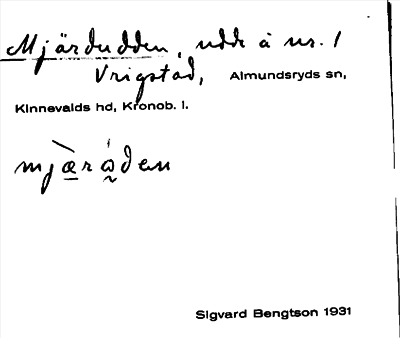 Mjärdudden, udde å nr. 1
Vrigstad, Almundsryds sn,
Kinnevalds hd, Kronob. l.
Sigvard Bengtson 1931